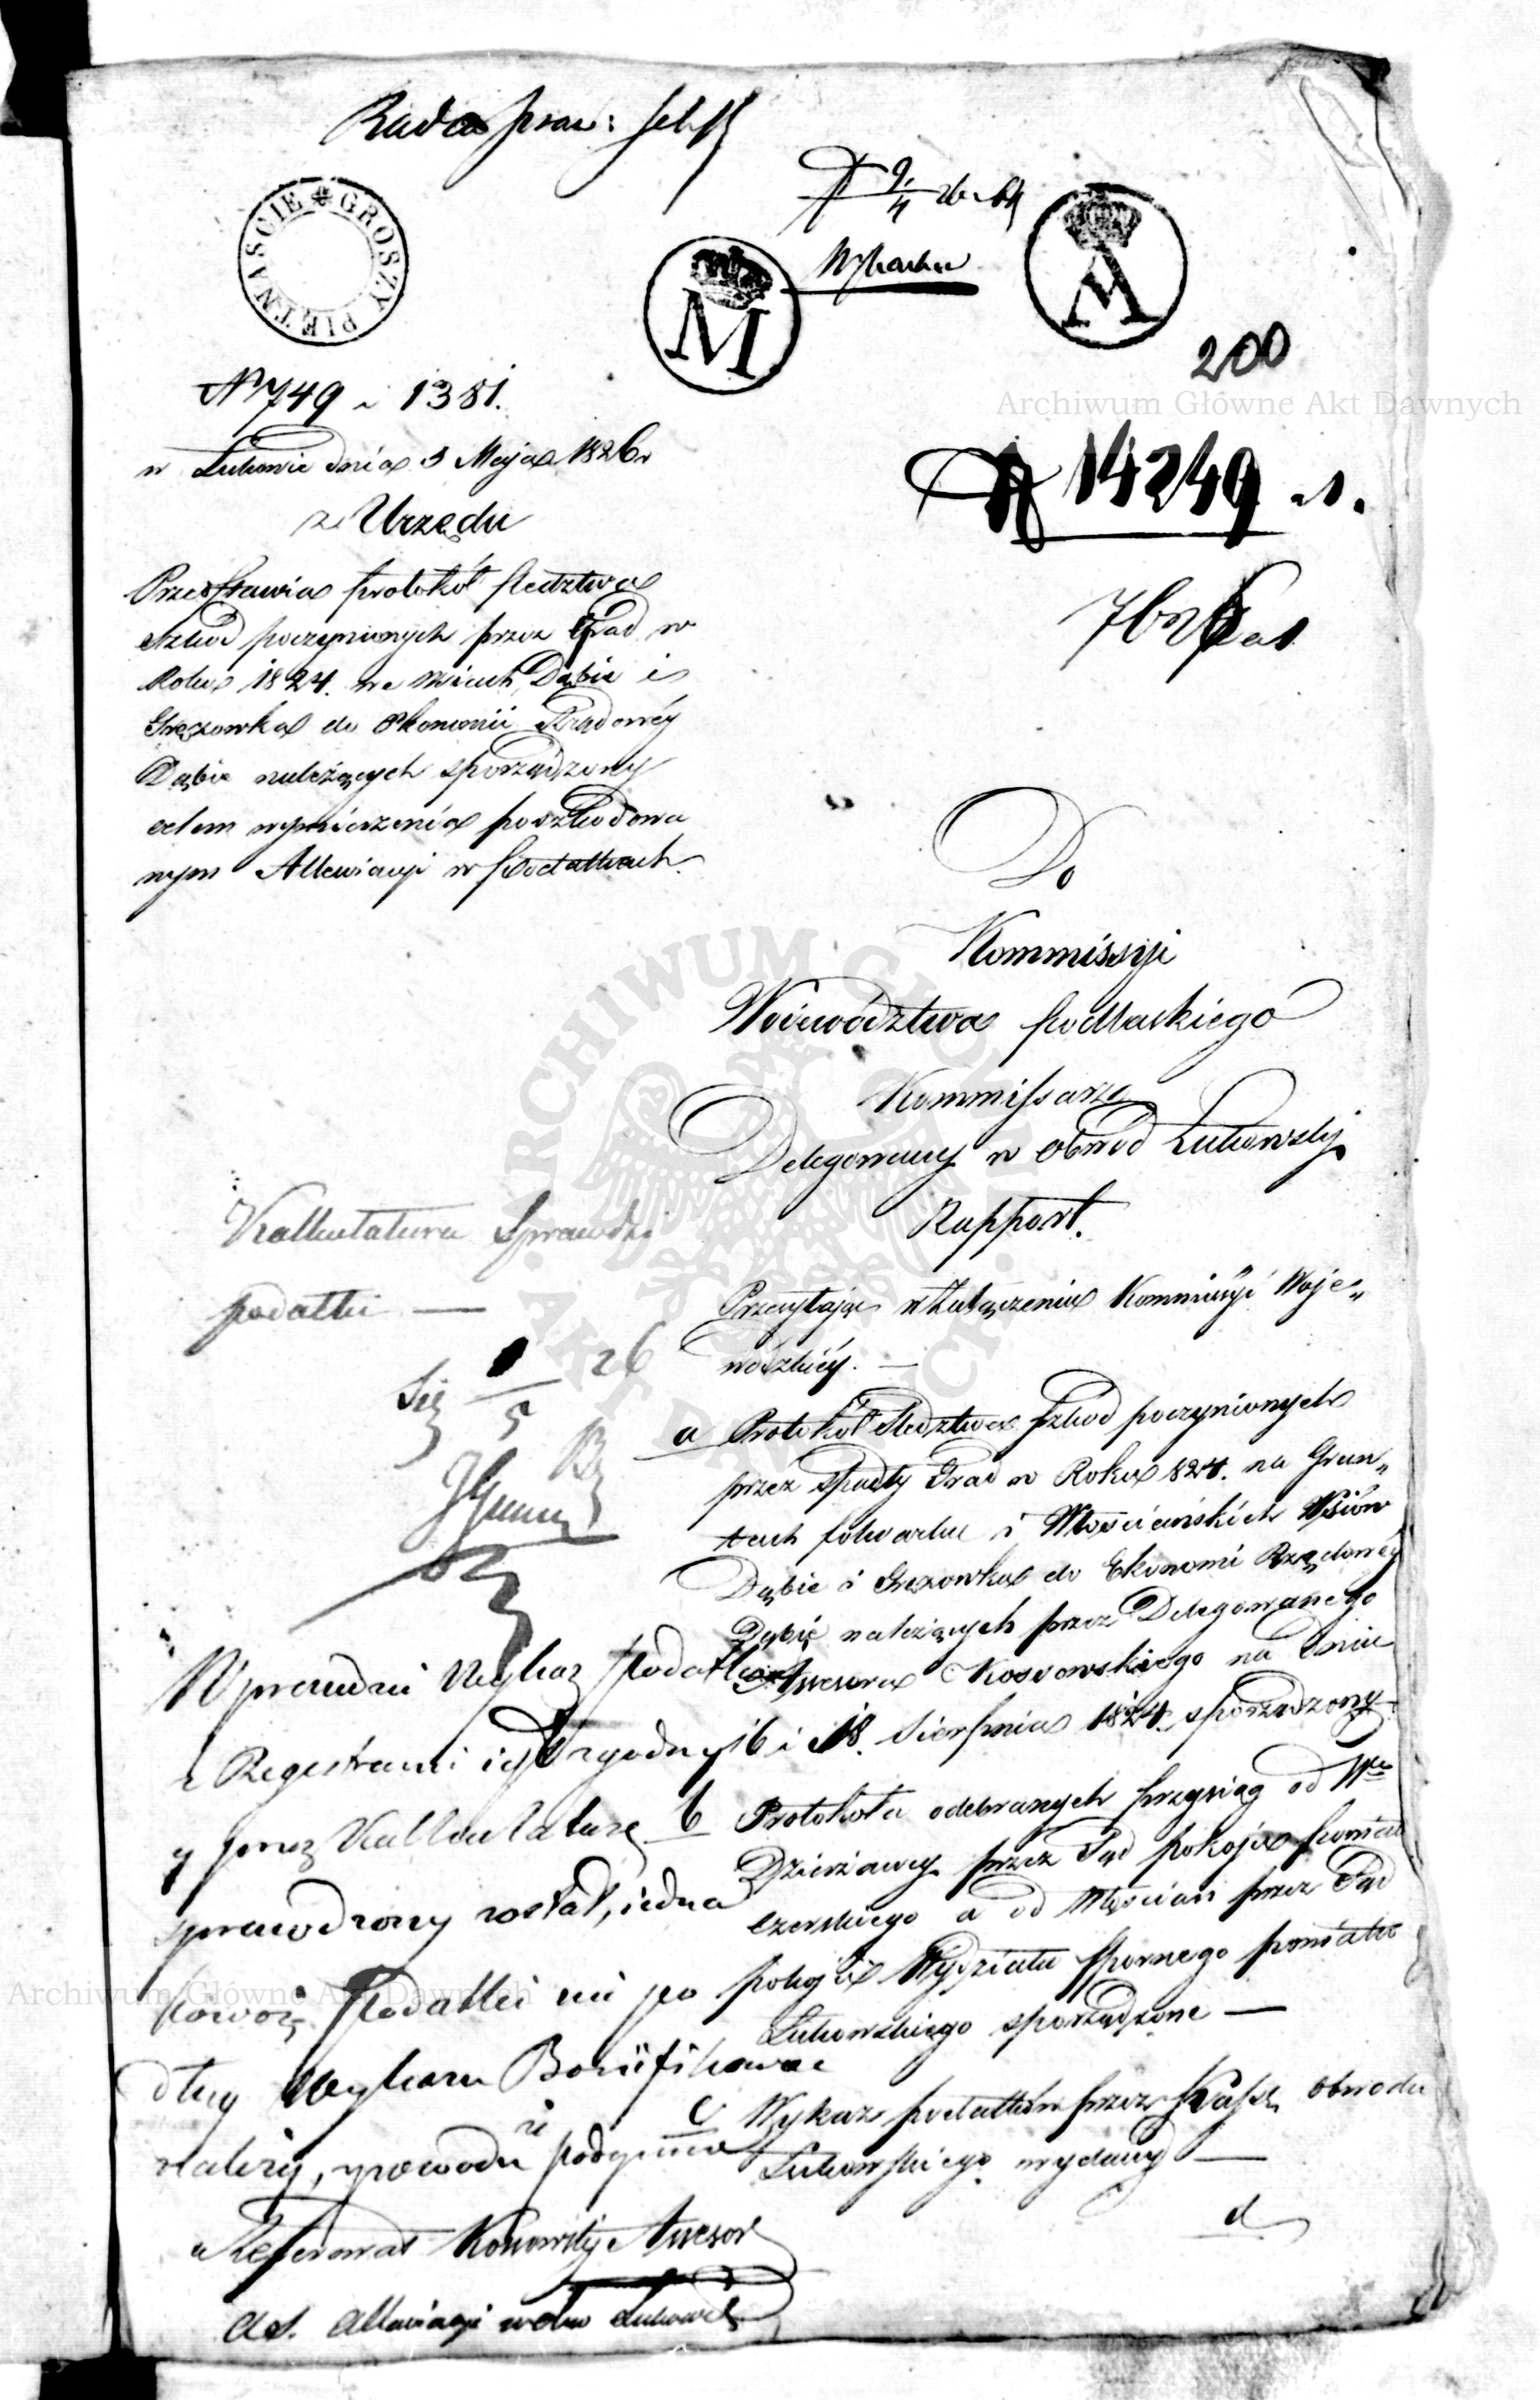 GROSZY PIETNAŚCIE
M
M
200
Archiwum Główne Akt Dawnych
№ 749 i 1381.
14249
w Łukowie dnia 3 Maja 1826 r
z Urzędu
Przedstawia protokół śledztwa
szkód poczynionych przez Grad w
Roku 1824. we wsiach Dąbie i
Gręzowka do Ekonomii Rządowéy
Dąbie należących sporządzony
celem wymierzenia poszkodowa
nym Allewiacyi w Podatkach.
Do
Kommissyi
Woiewództwa Podlaskiego
Kommissarz
Delegowany w Obwód Łukowski
Rapport.
Kalkulatura sprawdzi
podatki —
26
5
Przesyłając w załączeniu Kommissyi Woje„
wódzkiéy. —
a Protokół śledztwa szkód poczynionych
przez spadły Grad w Roku 1824. na Grun„
tach folwarku i Włościańskich Wsiów
Dąbie i Gręzowka do Ekonomi Rządowéy
Dąbie należących przez Delegowanego
Assessora Kossowskiego na dniu
16 i 18. Sierpnia 1824. sporządzony
b Protokoła odebranych przysiąg od
Dzierżawcy przez Sąd pokoju Powiatu
a od Włościan przez Sąd
pokoju Wydziału Spornego powiatu
Łukowskiego sporządzone —
c Wykaz podatków przez Kassę Obwodu
Łukowskiego wydany —
d
Wprawdzie Wykaz Podatków
z Regestrami iest zgodny
y przez Kalkulaturę
sprawdzony został, iedna
kowoż Podatki nie po
dług Wykazu Bonifikować
należy, z powodu
Referował Assessor
Archiwum Główne Akt Dawnych
ARCHIWUM GŁÓWNE AKT DAWNYCH